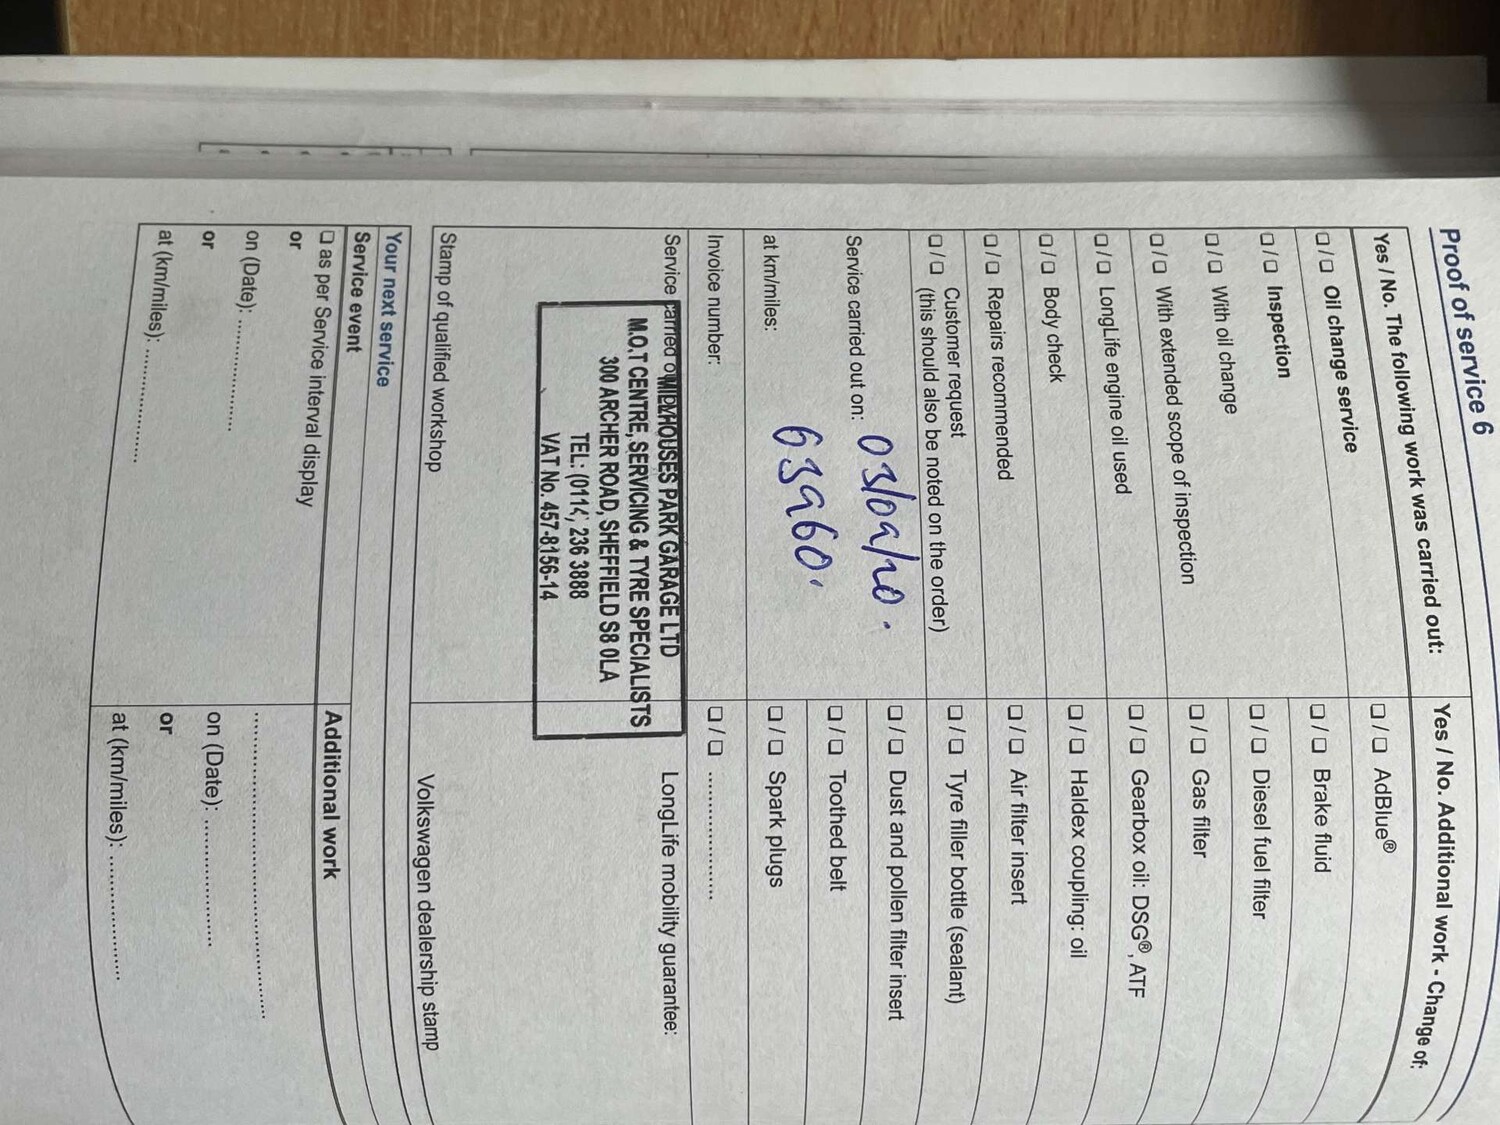 Proof of service 6
Yes / No. The following work was carried out:
☐ / ☐ Oil change service
☐ / ☐ Inspection
☐ / ☐ With oil change
☐ / ☐ With extended scope of inspection
☐ / ☐ LongLife engine oil used
☐ / ☐ Body check
☐ / ☐ Repairs recommended
☐ / ☐ Customer request
(this should also be noted on the order)
Service carried out on: 03/09/20.
at km/miles: 63960.
Invoice number:
Service carried
PARK GARAGE LTD
M.O.T CENTRE, SERVICING & TYRE SPECIALISTS
300 ARCHER ROAD, SHEFFIELD S8 0LA
TEL: (0114) 236 3888
VAT No. 457-8156-14
Stamp of qualified workshop
Yes / No. Additional work - Change of:
☐ / ☐ AdBlue®
☐ / ☐ Brake fluid
☐ / ☐ Diesel fuel filter
☐ / ☐ Gas filter
☐ / ☐ Gearbox oil: DSG®, ATF
☐ / ☐ Haldex coupling: oil
☐ / ☐ Air filter insert
☐ / ☐ Tyre filler bottle (sealant)
☐ / ☐ Dust and pollen filter insert
☐ / ☐ Toothed belt
☐ / ☐ Spark plugs
☐ / ☐ ....................
LongLife mobility guarantee:
Volkswagen dealership stamp
Your next service
Service event
☐ as per Service interval display
or
on (Date): ....................
or
at (km/miles): ....................
Additional work
........................................
on (Date): ....................
or
at (km/miles): ....................